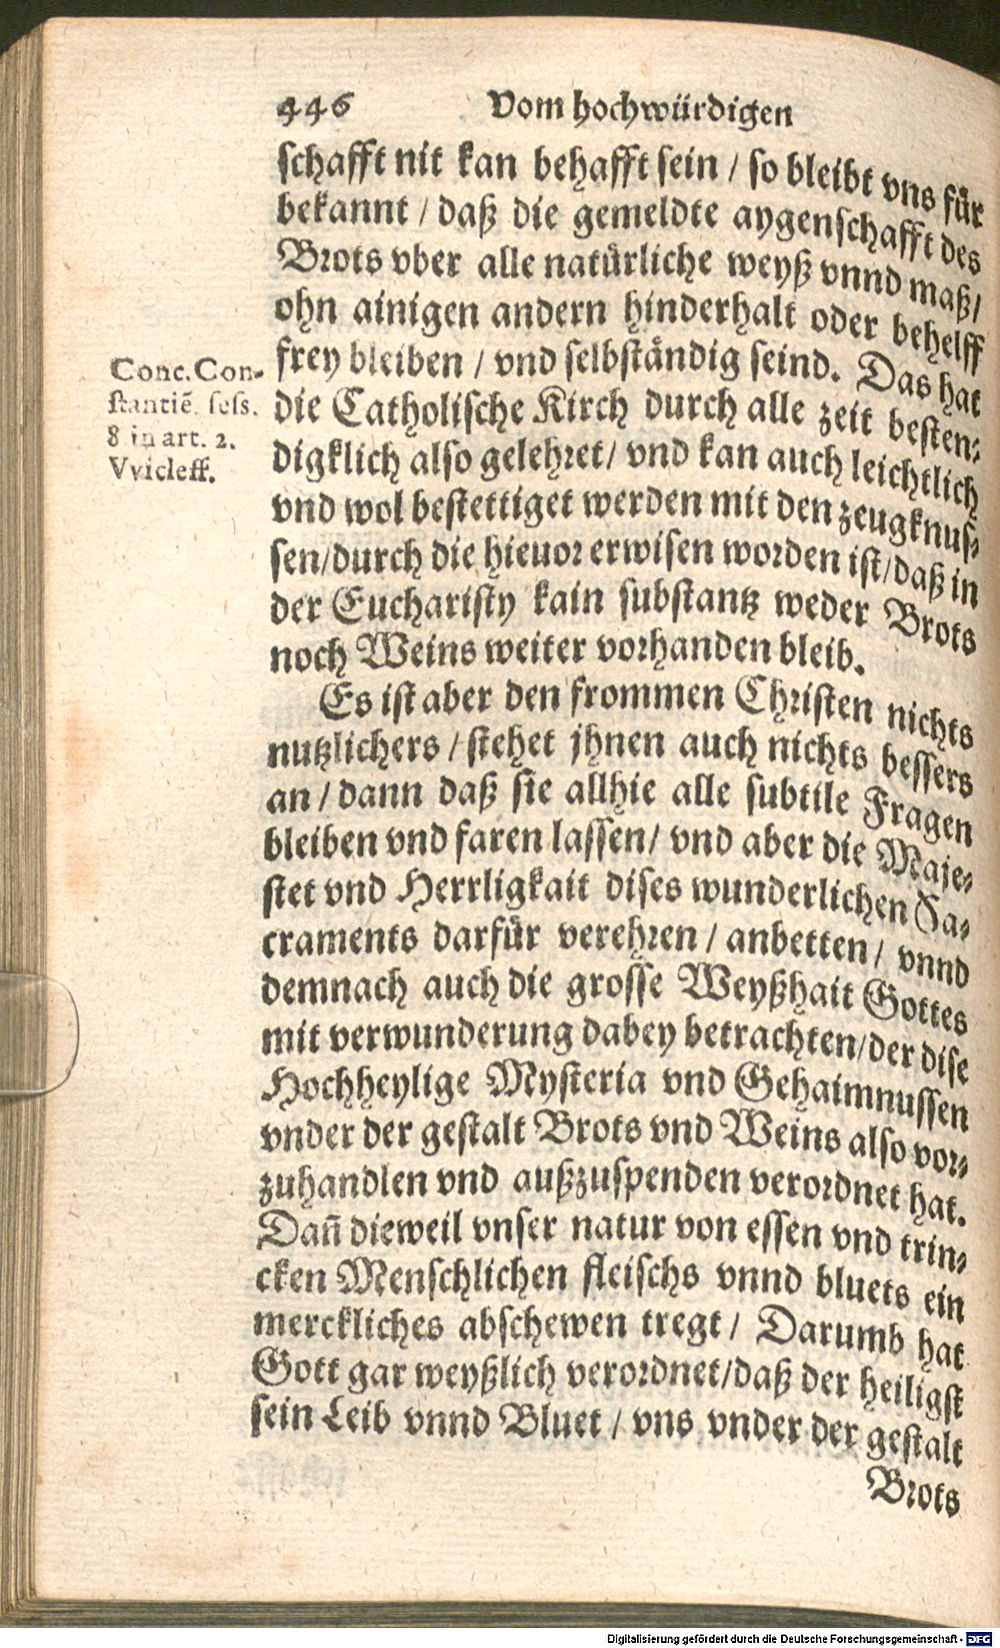 446 Vom hochwürdigen
schafft nit kan behafft sein / so bleibt vns für
bekannt / daß die gemeldte aygenschafft des
Brots vber alle natürliche weyß vnnd maß /
ohn ainigen andern hinderhalt oder behelff
frey bleiben / vnd selbständig seind. Das hat
die Catholische Kirch durch alle zeit besten-
digklich also gelehret / vnd kan auch leichtlich
vnd wol bestettiget werden mit den zeugknus-
sen / durch die hieuor erwisen worden ist / daß in
der Eucharisty kain substantz weder Brots
noch Weins weiter vorhanden bleib.
Conc. Con-
stantiē. sess.
8 in art. 2.
Vvicleff.
Es ist aber den frommen Christen nichts
nutzlichers / stehet jhnen auch nichts bessers
an / dann daß sie allhie alle subtile Fragen
bleiben vnd faren lassen / vnd aber die Maje-
stet vnd Herrligkait dises wunderlichen Sa-
craments darfür verehren / anbetten / vnnd
demnach auch die grosse Weyßhait Gottes
mit verwunderung dabey betrachten / der dise
Hochheylige Mysteria vnd Gehaimnussen
vnder der gestalt Brots vnd Weins also vor-
zuhandlen vnd außzuspenden verordnet hat.
Dañ dieweil vnser natur von essen vnd trin-
cken Menschlichen fleischs vnnd bluets ein
merckliches abschewen tregt / Darumb hat
Gott gar weyßlich verordnet / daß der heiligst
sein Leib vnnd Bluet / vns vnder der gestalt
Brots
Digitalisierung gefördert durch die Deutsche Forschungsgemeinschaft - DFG